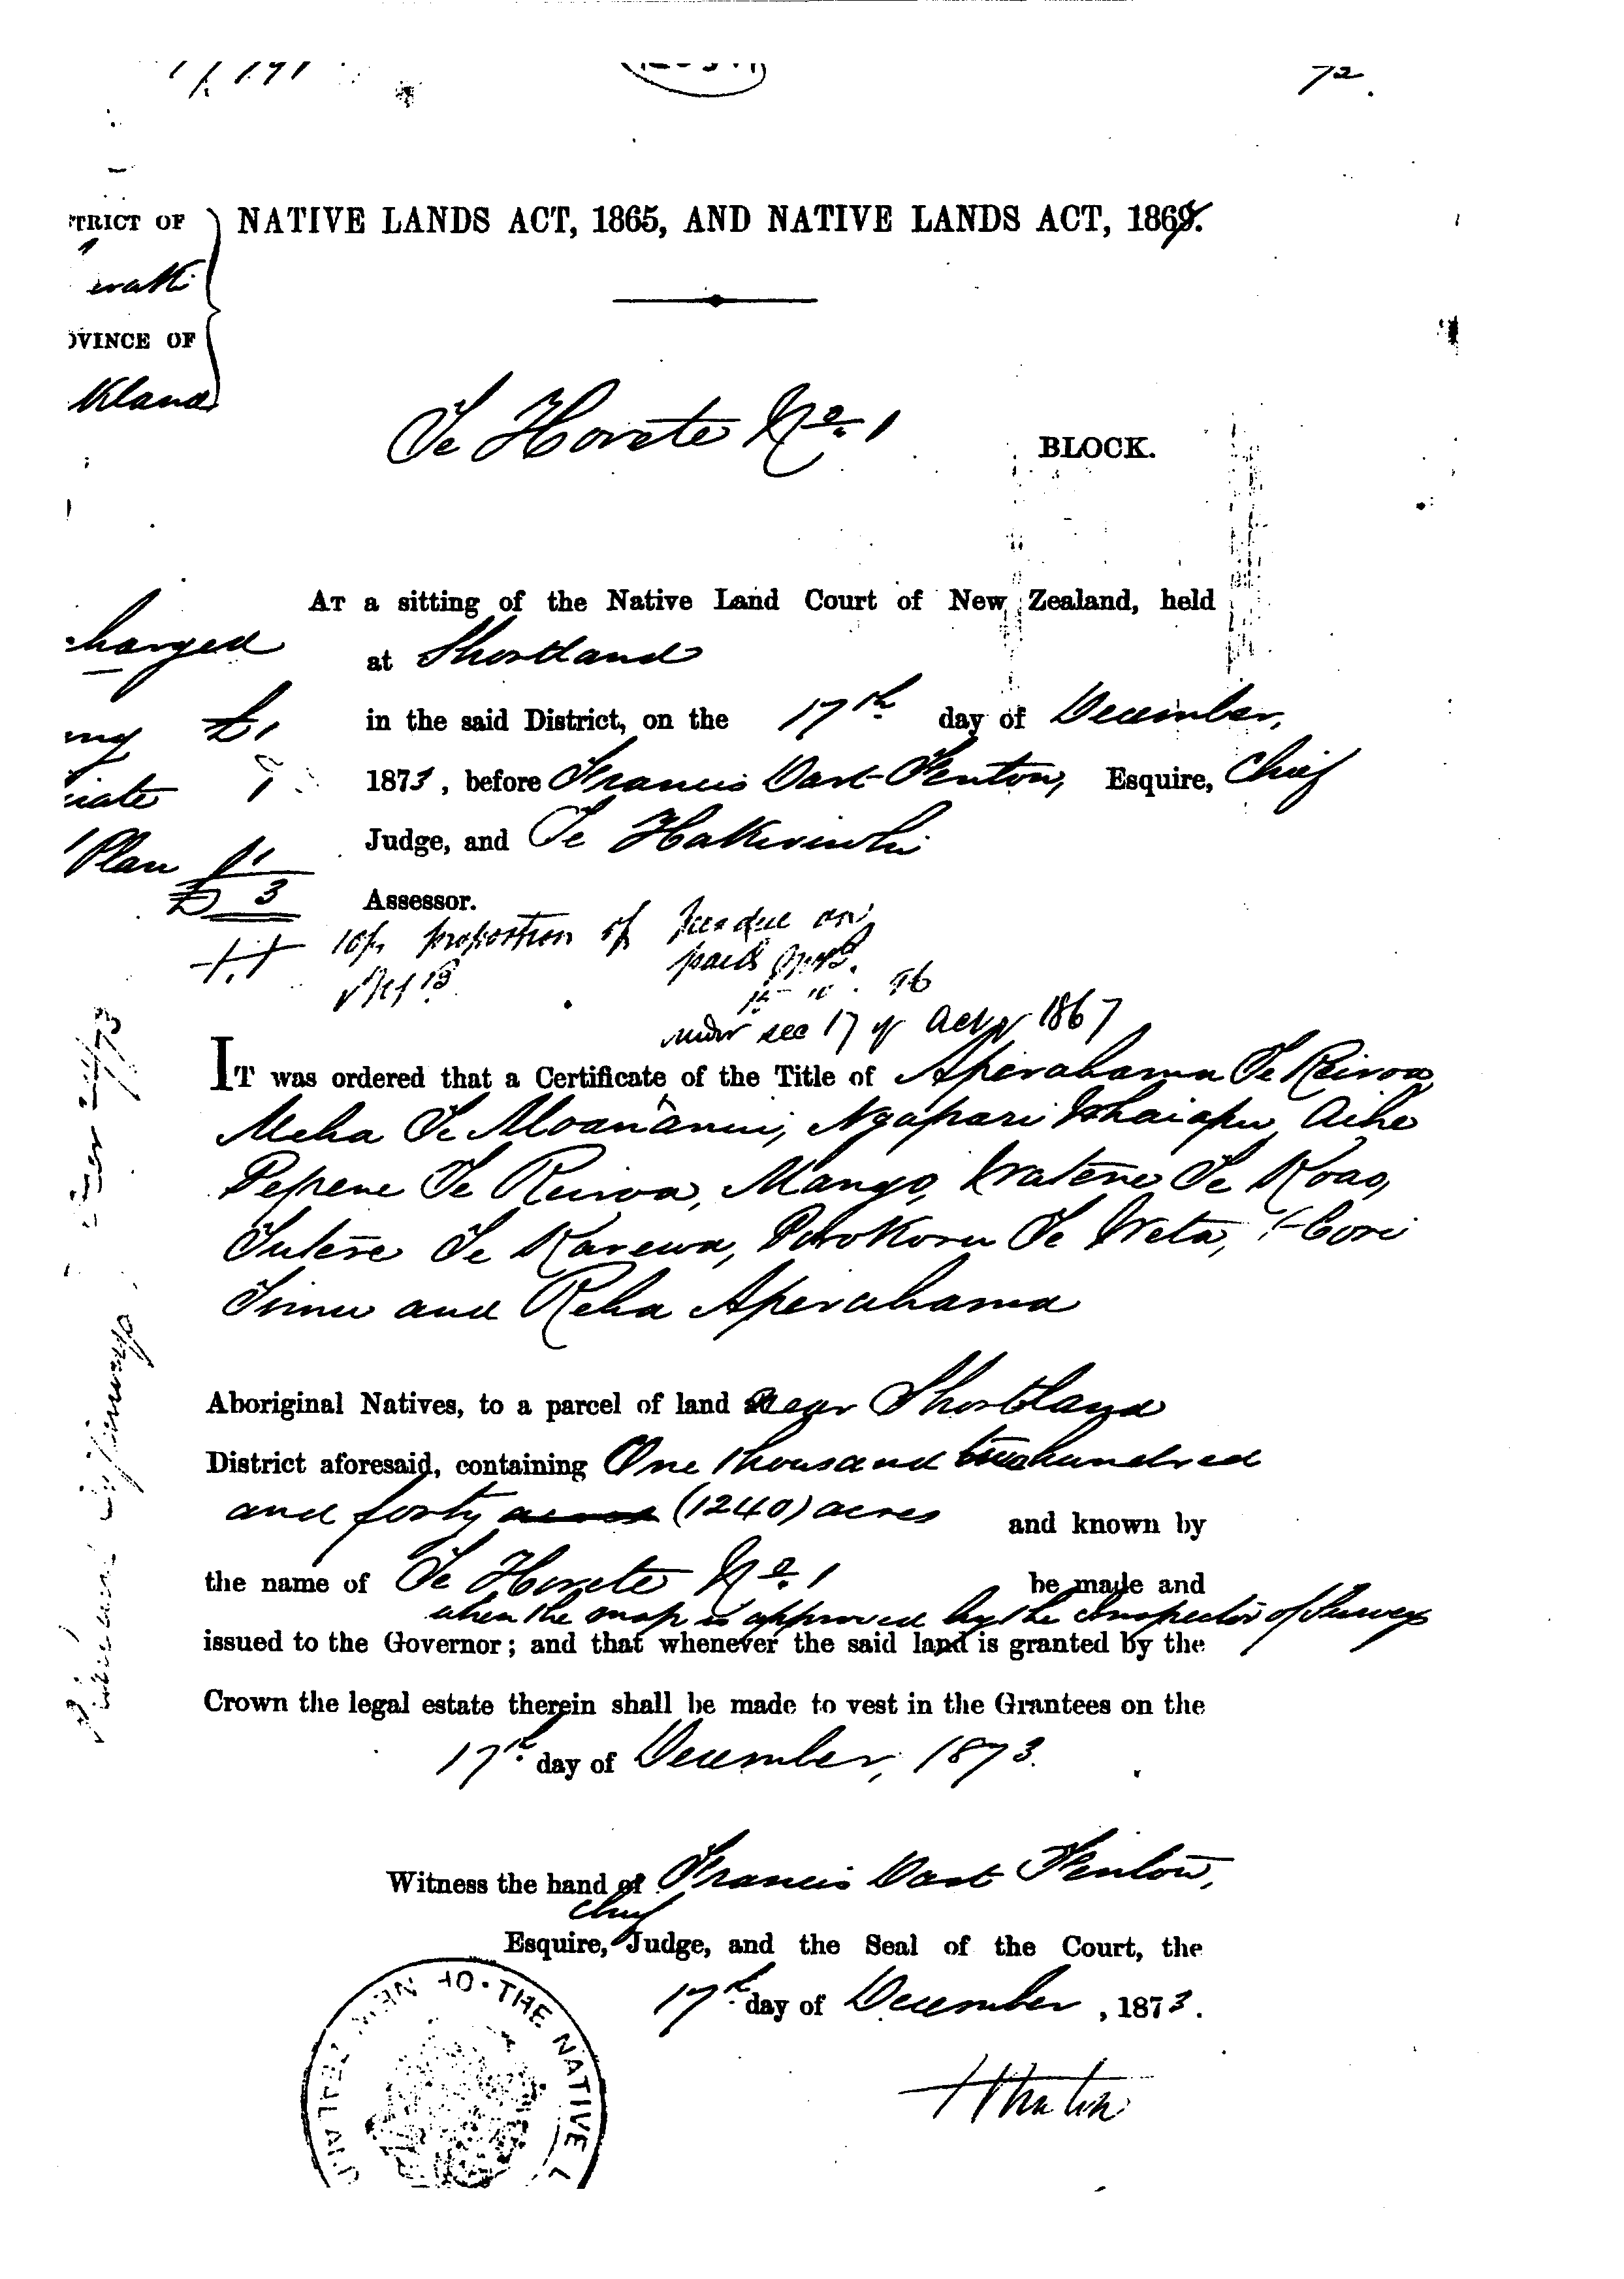 72.
TRICT OF
NATIVE LANDS ACT, 1865, AND NATIVE LANDS ACT, 1869.
OVINCE OF
kland
Te Horete No. 1
BLOCK.
AT a sitting of the Native Land Court of New Zealand, held
charged
at Shortland
in the said District, on the 17th day of December,
£1
1873, before Francis Dart Fenton, Esquire, Chief
1
Judge, and Te Hakiriwhi
Plan £1
£ 3
Assessor.
proportion of fees due on
under sec 17 of Act of 1867
IT was ordered that a Certificate of the Title of Aperahama Te Reiroa,
Meha Te Moananui, Ngapari Whaiapu, Aihe
Pepene Te Reiroa, Mango, Watene Te Koao,
Tutere Te Karewa, Porokoru Te Weta, Hori
Timu and Reha Aperahama
Aboriginal Natives, to a parcel of land near Shortland
District aforesaid, containing One thousand two hundred
and forty acres (1240) acres and known by
the name of Te Horete No. 1 be made and
when the map is approved by the Inspector of Surveys
issued to the Governor; and that whenever the said land is granted by the
Crown the legal estate therein shall be made to vest in the Grantees on the
17th day of December, 1873.
Witness the hand of Francis Dart Fenton,
Chief
Esquire, Judge, and the Seal of the Court, the
17th day of December, 1873.
OF NEW ZEALAND · THE NATIVE L